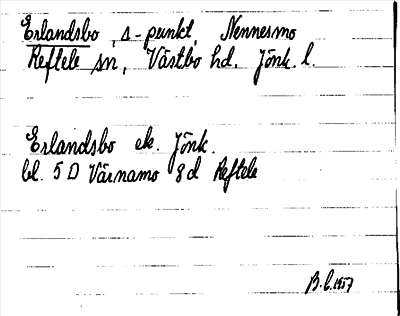 Erlandsbo, s-punkt, Nennesmo
Reftele sn, Västbo hd. Jönk. l.
Erlandsbo ek. Jönk.
bl. 5 D Värnamo 8 d Reftele
B.L. 1957